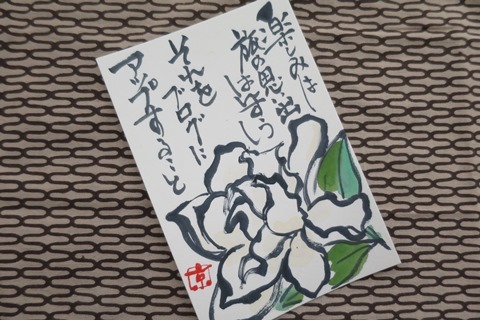 楽しみは
旅の思い出
はなまつ
それを
ブログに
アップすること